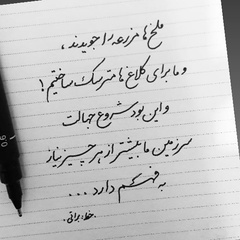 ملخ‌ها مزرعه را جویدند،
و ما برای کلاغ‌ها مترسک ساختیم!
و این بود شروع جهالت
سرزمین ما بیشتر از هر چیز نیاز
به فهم دارد ...